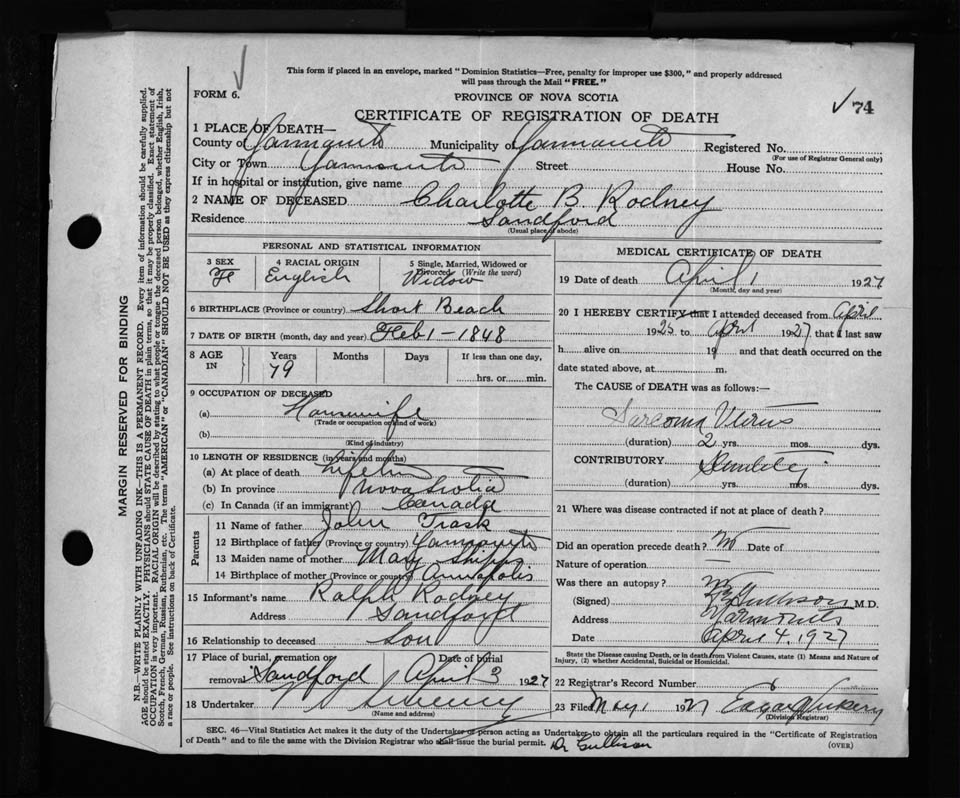 This form if placed in an envelope, marked "Dominion Statistics—Free, penalty for improper use $300," and properly addressed
will pass through the Mail "FREE."
FORM 6.
PROVINCE OF NOVA SCOTIA
74
CERTIFICATE OF REGISTRATION OF DEATH
1 PLACE OF DEATH—
County of Yarmouth Municipality of Yarmouth Registered No.
(For use of Registrar General only)
City or Town Yarmouth Street House No.
If in hospital or institution, give name
2 NAME OF DECEASED Charlotte B. Rodney
Residence Sandford
(Usual place of abode)
PERSONAL AND STATISTICAL INFORMATION
3 SEX 4 RACIAL ORIGIN 5 Single, Married, Widowed or
Divorced (Write the word)
Fe English Widow
6 BIRTHPLACE (Province or country) Short Beach
7 DATE OF BIRTH (month, day and year) Feb 1 - 1848
8 AGE IN Years Months Days If less than one day,
79 hrs. or min.
9 OCCUPATION OF DECEASED
(a) Housewife
(Trade or occupation or kind of work)
(b)
(Kind of industry)
10 LENGTH OF RESIDENCE (in years and months)
(a) At place of death Lifetim
(b) In province Nova Scotia
(c) In Canada (if an immigrant) Canada
Parents
11 Name of father John Trask
12 Birthplace of father (Province or country) Yarmouth
13 Maiden name of mother Mary
14 Birthplace of mother (Province or country) Annapolis
15 Informant's name Ralph Rodney
Address Sandford
16 Relationship to deceased Son
17 Place of burial, cremation or Date of burial
removal Sandford April 3 1927
18 Undertaker V S Sweeny
(Name and address)
MEDICAL CERTIFICATE OF DEATH
19 Date of death April 1 1927
(Month, day and year)
20 I HEREBY CERTIFY that I attended deceased from April
1925 to April 1927 that I last saw
h alive on 19 and that death occurred on the
date stated above, at m.
The CAUSE of DEATH was as follows:—
Sarcoma Uterus
(duration) 2 yrs. mos. dys.
CONTRIBUTORY
(duration) yrs. mos. dys.
21 Where was disease contracted if not at place of death?
Did an operation precede death? no Date of
Nature of operation —
Was there an autopsy? no
(Signed) M.D.
Address Yarmouth
Date April 4, 1927
State the Disease causing Death, or in death from Violent Causes, state (1) Means and Nature of
Injury, (2) whether Accidental, Suicidal or Homicidal.
22 Registrar's Record Number
23 Filed May 1 1927 Edgar
(Division Registrar)
SEC. 46—Vital Statistics Act makes it the duty of the Undertaker or person acting as Undertaker to obtain all the particulars required in the "Certificate of Registration
of Death" and to file the same with the Division Registrar who shall issue the burial permit.
(OVER)
MARGIN RESERVED FOR BINDING
N.B.—WRITE PLAINLY WITH UNFADING INK—THIS IS A PERMANENT RECORD. Every item of information should be carefully supplied.
AGE should be stated EXACTLY. PHYSICIANS should STATE CAUSE OF DEATH in plain terms, so that it may be properly classified. Exact statement of
OCCUPATION is very important. RACIAL ORIGIN will be described by stating to what people or tongue the deceased person belonged, whether English, Irish,
Scotch, French, German, Russian, Ruthenian, etc. The terms "AMERICAN" or "CANADIAN" SHOULD NOT BE USED as they express citizenship but not
a race or people. See instructions on back of Certificate.